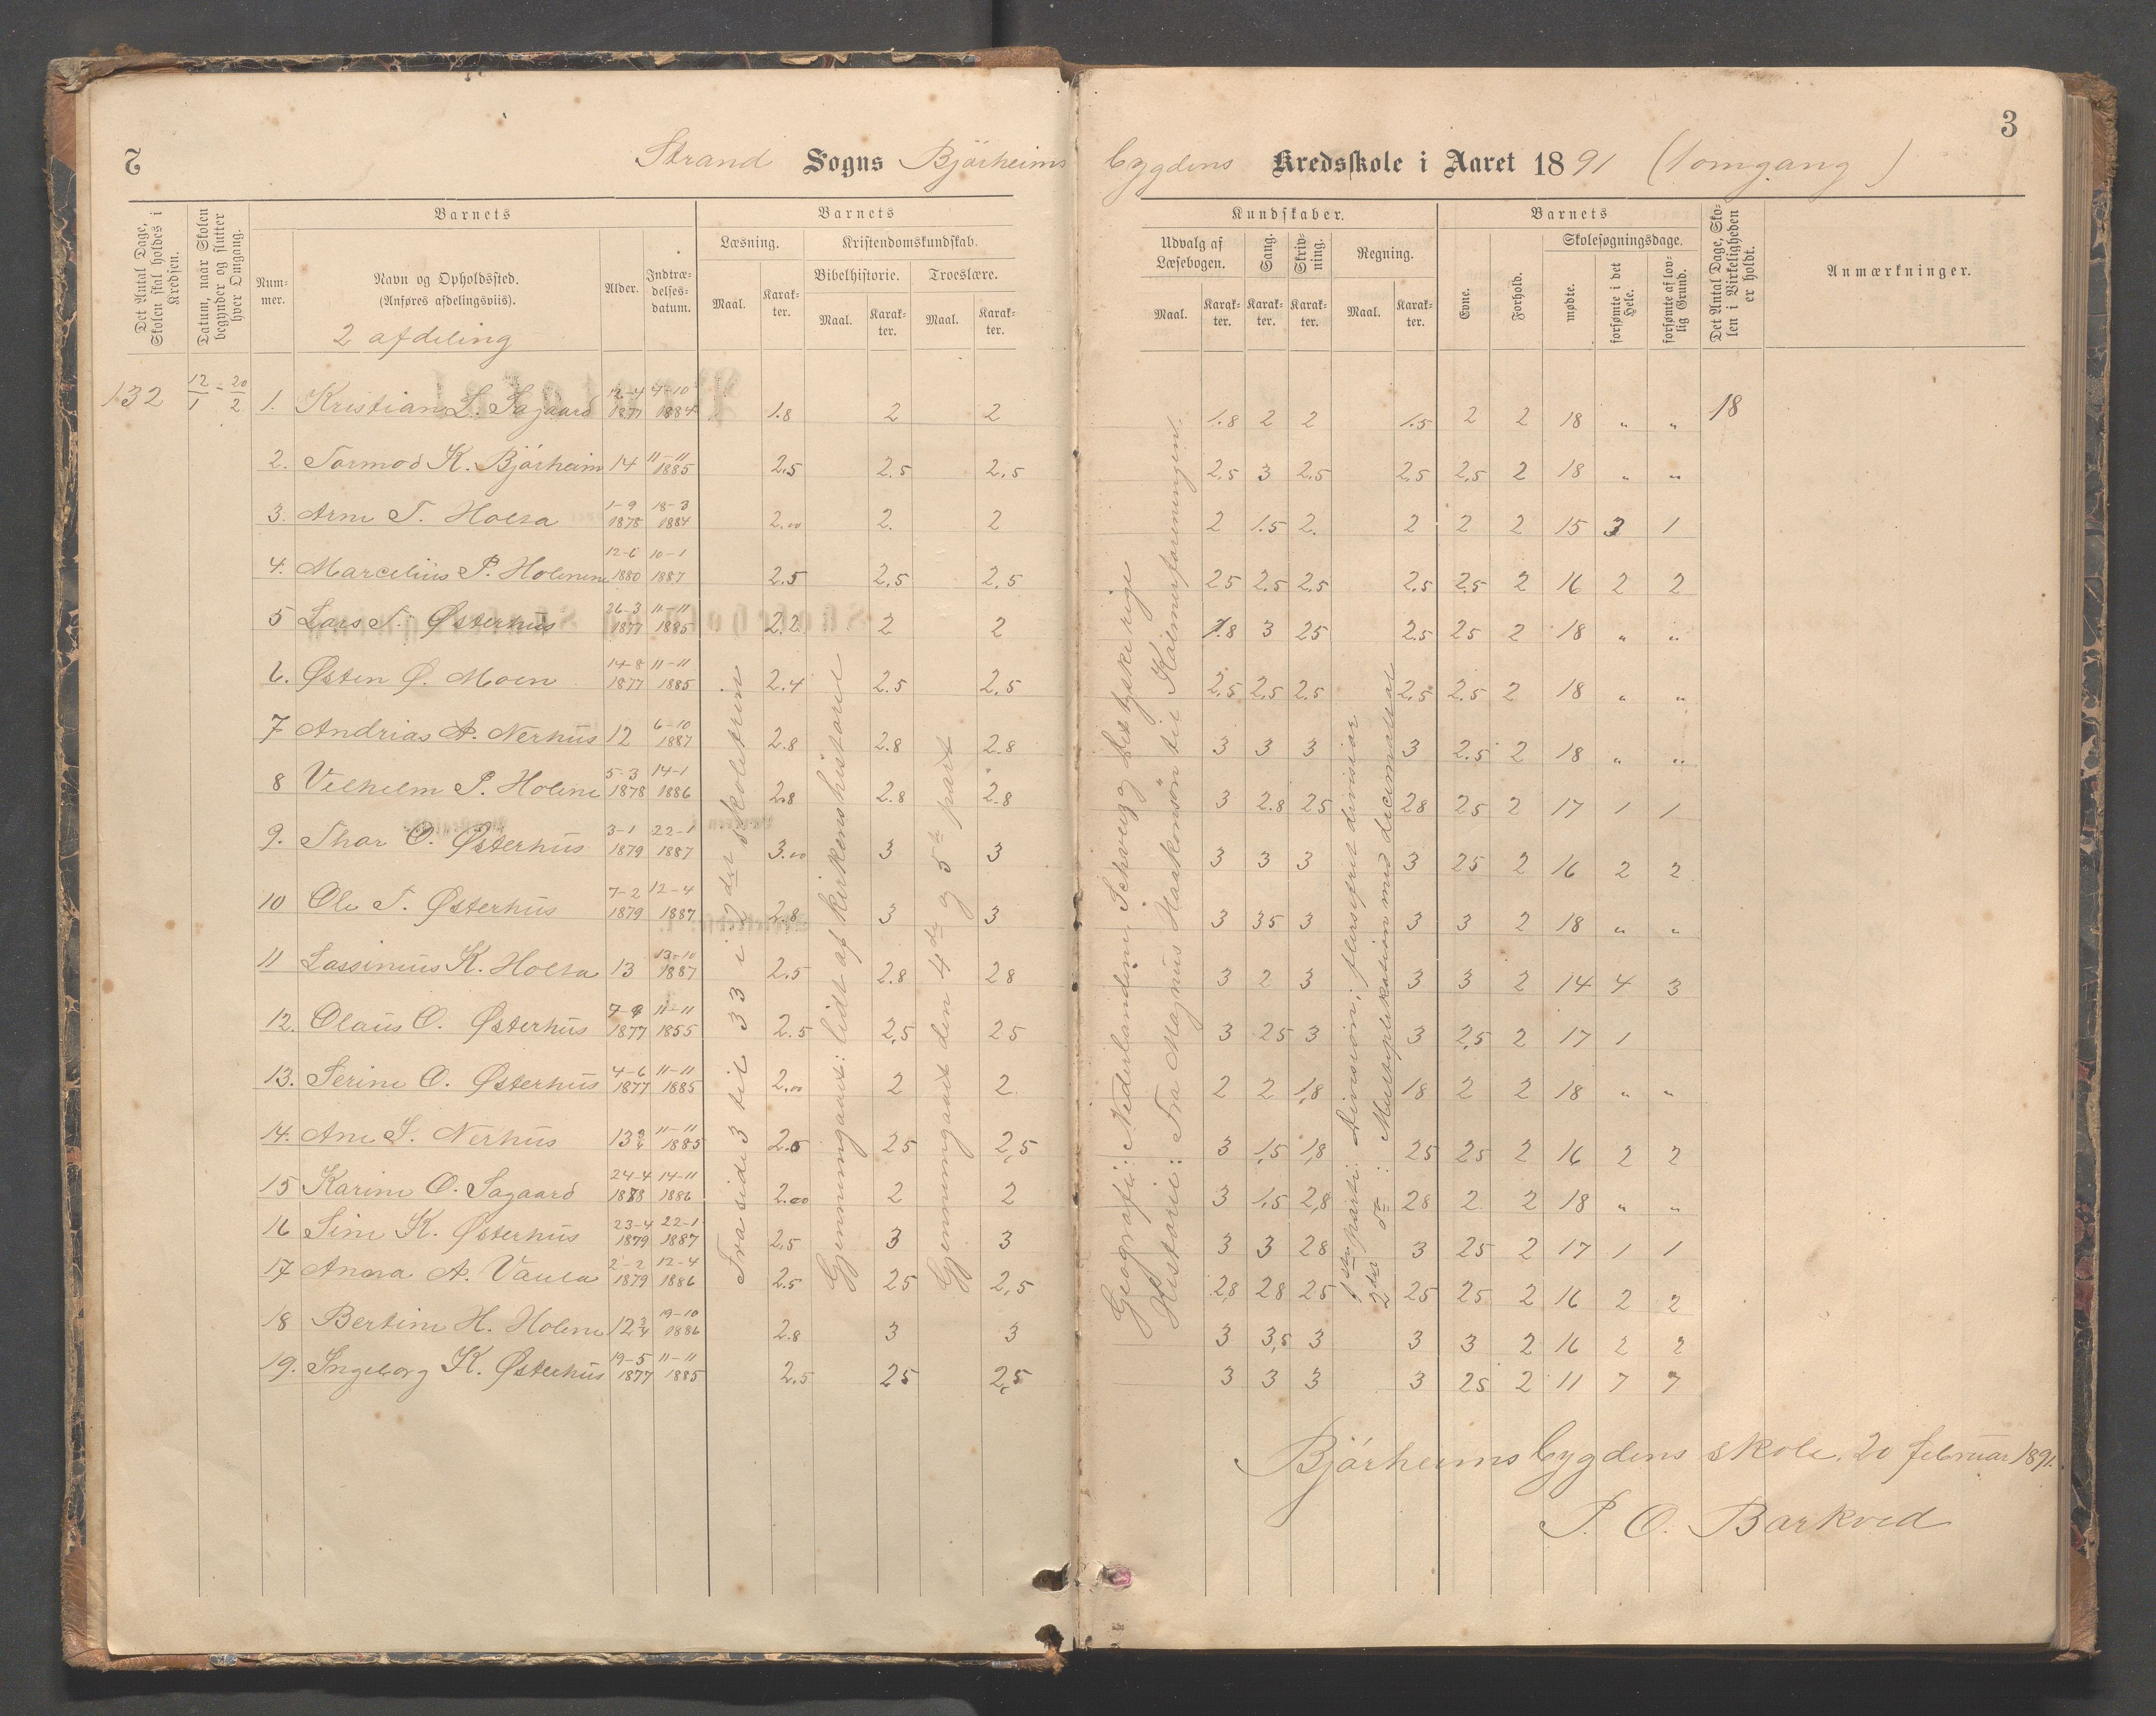 2
Strand Sogns Bjørheims
Det Antal Dage, Skolen skal holdes i Kredsen.
Datum, naar Skolen begynder og slutter hver Omgang.
Barnets
Nummer.
Navn og Opholdssted. (Anføres afdelingsviis).
2 afdeling
Alder.
Indtrædelsesdatum.
Barnets
Læsning.
Maal.
Karakter.
Kristendomskundskab.
Bibelhistorie.
Maal.
Karakter.
Troeslære.
Maal.
Karakter.
132 12/1 - 20/2 1. Kristian L. Sagaard 12-4 1877 7-10 1884 1.8 2 2
2. Tormod K. Bjørheim 14 11-11 1885 2.5 2.5 2.5
3. Arne T. Holta 1-9 1878 18-3 1884 2.00 2. 2
4. Marcelius P. Holmene 12-6 1880 10-1 1887 2.5 2.5 2.5
5 Lars T. Østerhus 26-3 1877 11-11 1885 2.2 2 2
6. Østen Ø. Moen 14-8 1877 11-11 1885 2.4 2.5 2.5
7 Andrias A. Nerhus 12 6-10 1887 2.8 2.8 2.8
8 Vilhelm P. Holme 5-3 1878 14-1 1886 2.8 2.8 2.8
9. Thor O. Østerhus 3-1 1879 22-1 1887 3.00 3 3
10 Ole T. Østerhus 7-2 1879 12-4 1887 2.8 3 3
11 Lassinius K. Holta 13 13-10 1887 2.5 2.8 28
12. Olaus O. Østerhus 1877 11-11 1855 2.5 2.5 25
13. Serine O. Østerhus 4-6 1877 11-11 1885 2.00 2 2
14. Ane S. Nerhus 13 11-11 1885 2.5 25 2,5
15 Karine O. Sagaard 24-4 1878 14-11 1886 2.00 2 2
16 Sine K. Østerhus 23-4 1879 22-1 1887 2.5 3 3
17 Anna A. Vaula 2-2 1879 12-4 1886 2.5 25 2,5
18 Bertine H. Holme 12 3/4 19-10 1886 2.8 3 3
19. Ingeborg K. Østerhus 19-5 1877 11-11 1885 2.5 25 2,5
Fra side 3 til 33 i 2det skoletrin
Gjennemgaaet: lidt af kirkens historie
Gjennemgaaet den 4de og 5te part
3
bygdens Kredsskole i Aaret 1891 (1 omgang)
Kundskaber.
Udvalg af Læsebogen.
Maal.
Karakter.
Sang.
Karakter.
Skrivning.
Karakter.
Regning.
Maal.
Karakter.
Barnets
Evne.
Forhold.
Skolesøgningsdage.
mødte.
forsømte i det Hele.
forsømte af lovlig Grund.
Det Antal Dage, Skolen i Virkeligheden er holdt.
Anmærkninger.
1.8 2 2 1.5 2 2 18 " " 18
2.5 3 2.5 2.5 2.5 2 18 " "
2 1.5 2. 2 2 2 15 3 1
25 2.5 2.5 2.5 2.5 2 16 2 2
1.8 3 25 2.5 25 2 18 " "
2.5 2.5 2.5 2.5 2.5 2 18 " "
3 3 3 3 2.5 2 18 " "
3 2.8 25 28 25 2 17 1 1
3 3 3 3 25 2 16 2 2
3 35 3 3 3 2 18 " "
3 2 3 3 3 2 14 4 3
3 25 3 3 2,5 2 17 1
2 2 1,8 18 2 2 18 " "
3 1,5 1,8 25 25 2 16 2 2
3 1,5 2,8 28 2 2 18 " "
3 3 28 3 25 2 17 1 1
2,8 28 25 25 25 2 16 2 2
3 3,5 3 3 3 2 16 2 2
3 3 3 3 25 2 11 7 7
Geografi: Nederlandene, Schveig og det tyske rige
Historie: Fra Magnus Haakonsøn til Kalmarforeningen.
1ste parti: Division; flersifret divisiar
2det do : Multiplikation med decimaltal
Bjørheimsbygdens skole, 20 februar 1891.
P. O. Barkved